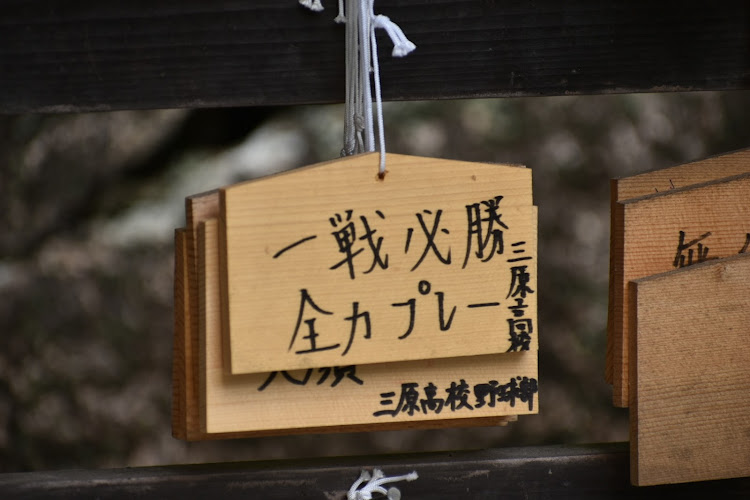 一戦必勝
全力プレー
三原高校
三原高校野球部